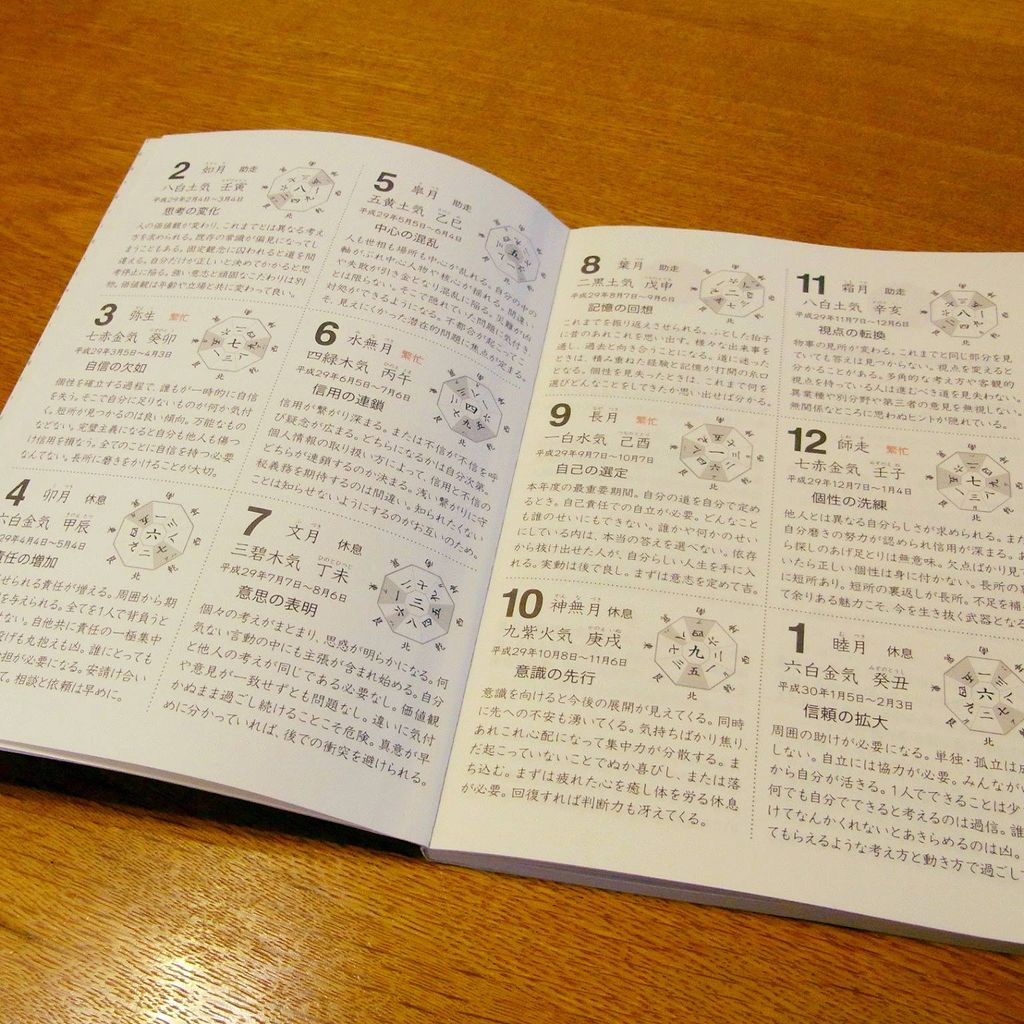 2 如月 助走
八白土気 壬寅
平成29年2月4日~3月4日
思考の変化
人の価値観が変わり、これまでとは異なる考え
方を求められる。既存の常識が偏見になってし
まうこともある。固定観念に囚われると道を間
違える。自分だけが正しいと決めてかかると思
考停止に陥る。強い意志と頑固なこだわりは別
物。価値観は年齢や立場と共に変わって良い。
3 弥生 繁忙
七赤金気 癸卯
平成29年3月5日~4月3日
自信の欠如
個性を確立する過程で、誰もが一時的に自信
を失う。そこで自分に足りないものが何か気付
く。短所が見つかるのは良い傾向。万能なもの
などない。完璧主義になると自分も他人も傷つ
け信用を損なう。全てのことに自信を持つ必要
なんてない。長所に磨きをかけることが大切。
4 卯月 休息
六白金気 甲辰
29年4月4日~5月4日
責任の増加
せられる責任が増える。周囲から期
を与えられる。全てを1人で背負うと
ない。自他共に責任の一極集中
投げも丸抱えも凶。誰にとっても
担が必要になる。安請け合い
て。相談と依頼は早めに。
5 皐月 助走
五黄土気 乙巳
平成29年5月5日~6月4日
中心の混乱
人も世相も場所も中心が乱れる。自分の中の
軸がぶれ中心人物や核心が揺れる。間違い
や失敗が引き金となり混乱に陥る。災難が凶
とは限らない。そこで隠れていた問題に気付き
対処ができるようになる。不都合が起こってこ
そ、見えにくかった潜在的問題に焦点が定まる。
6 水無月 繁忙
四緑木気 丙午
平成29年6月5日~7月6日
信用の連鎖
信用が繋がり深まる。または不信が不信を呼
び疑念が広まる。どちらになるかは自分次第。
個人情報の取り扱い方によって、信用と不信の
どちらが連鎖するのか決まる。浅い繋がりに守
秘義務を期待するのは間違い。知られたくない
ことは知らせないようにするのがお互いのため。
7 文月 休息
三碧木気 丁未
平成29年7月7日~8月6日
意思の表明
個々の考えがまとまり、思惑が明らかになる。何
気ない言動の中にも主張が含まれ始める。自分
と他人の考えが同じである必要なし。価値観
や意見が一致せずとも問題なし。違いに気付
かぬまま過ごし続けることこそ危険。真意が早
めに分かっていれば、後での衝突を避けられる。
8 葉月 助走
二黒土気 戊申
平成29年8月7日~9月6日
記憶の回想
これまでを振り返えさせられる。ふとした拍子
に昔のあれこれを思い出す。様々な出来事を
通し、過去と向き合うことになる。道に迷った
ときは、積み重ねた経験と記憶が打開の糸口
となる。個性を見失ったときは、これまで何を
選びどんなことをしてきたか思い出せば分かる。
9 長月 繁忙
一白水気 己酉
平成29年9月7日~10月7日
自己の選定
本年度の最重要期間。自分の道を自分で定め
るとき。自己責任での自立が必要。どんなこと
も誰のせいにもできない。誰かや何かのせい
にしている内は、本当の答えを選べない。依存
から抜け出せた人が、自分らしい人生を手に入
れる。実動は後で良し。まずは意志を定めて吉。
10 神無月 休息
九紫火気 庚戌
平成29年10月8日~11月6日
意識の先行
意識を向けると今後の展開が見えてくる。同時
に先への不安も湧いてくる。気持ちばかり焦り、
あれこれ心配になって集中力が分散する。ま
だ起こっていないことでぬか喜びし、または落
ち込む。まずは疲れた心を癒し体を労る休息
が必要。回復すれば判断力も冴えてくる。
11 霜月 助走
八白土気 辛亥
平成29年11月7日~12月6日
視点の転換
物事の見所が変わる。これまでと同じ部分を見
ていても答えは見つからない。視点を変えると
分かることがある。多角的な考え方や客観的
視点を持っている人は進むべき道を見失わない。
異業種や別分野や第三者の意見を無視しない。
無関係なところに思わぬヒントが隠れている。
12 師走 繁忙
七赤金気 壬子
平成29年12月7日~1月4日
個性の洗練
他人とは異なる自分らしさが求められる。また
自分磨きの努力が認められ信用が深まる。あ
ら探しのあげ足とりは無意味。欠点ばかり見て
いたら正しい個性は身に付かない。長所の
に短所あり。短所の裏返しが長所。不足を補
て余りある魅力こそ、今を生き抜く武器となる
1 睦月 休息
六白金気 癸丑
平成30年1月5日~2月3日
信頼の拡大
周囲の助けが必要になる。単独・孤立は
しない。自立には協力が必要。みんなが
から自分が活きる。1人でできることは少
何でも自分でできると考えるのは過信。誰
けてなんかくれないとあきらめるのは凶。
てもらえるような考え方と動き方で過ごし